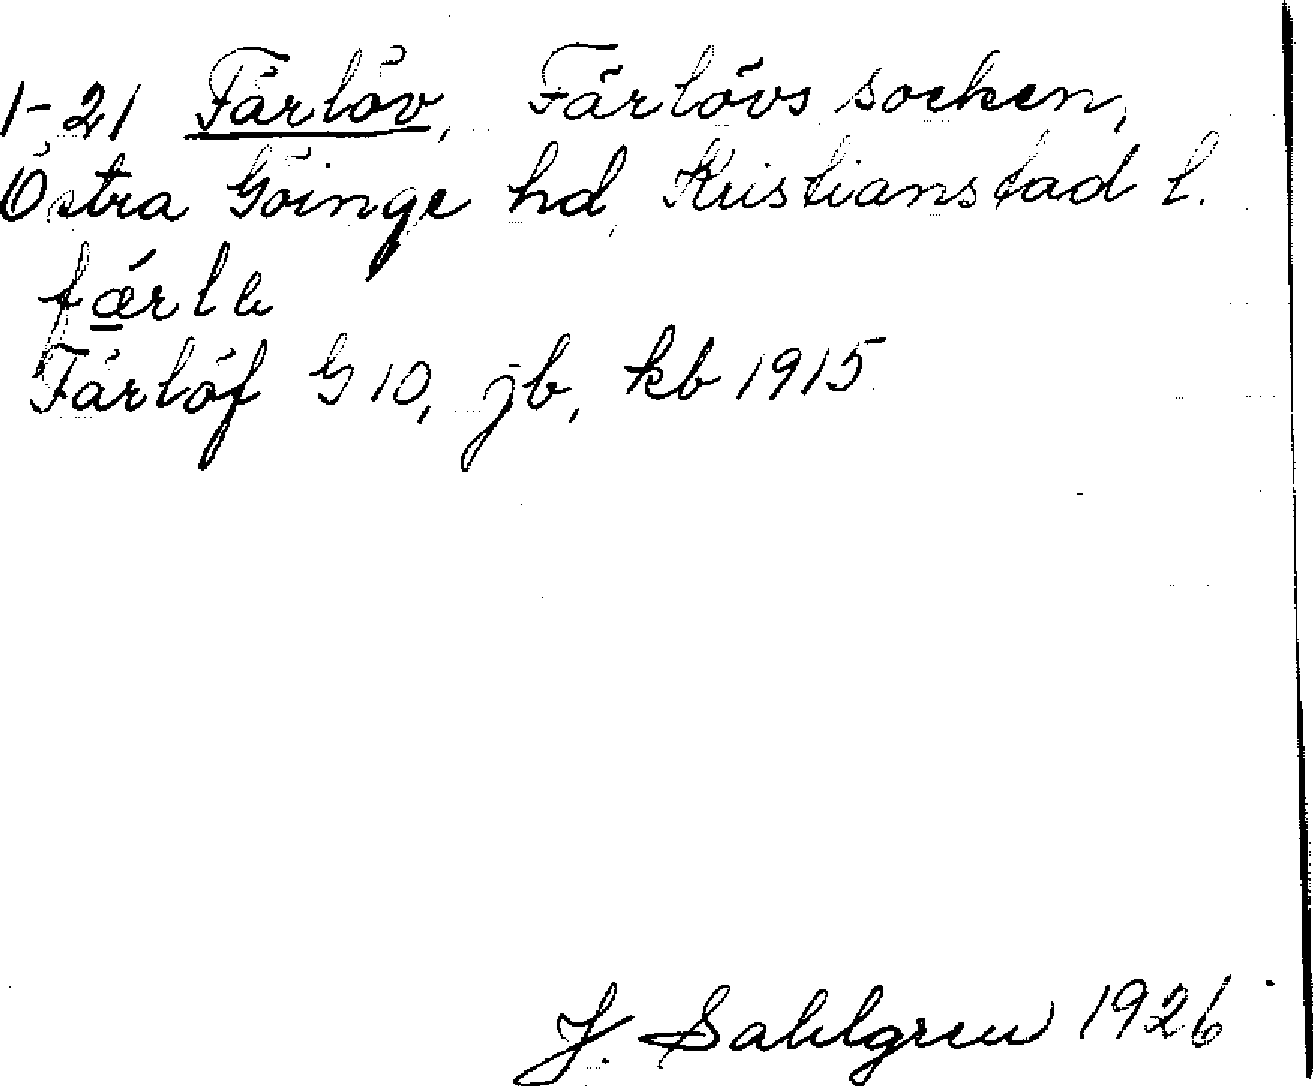 1-21 Färlöv, Färlövs socken,
Östra Göinge hd, Kristianstad l.
Färlöf G 10, jb, kb 1915
J. Sahlgren 1926